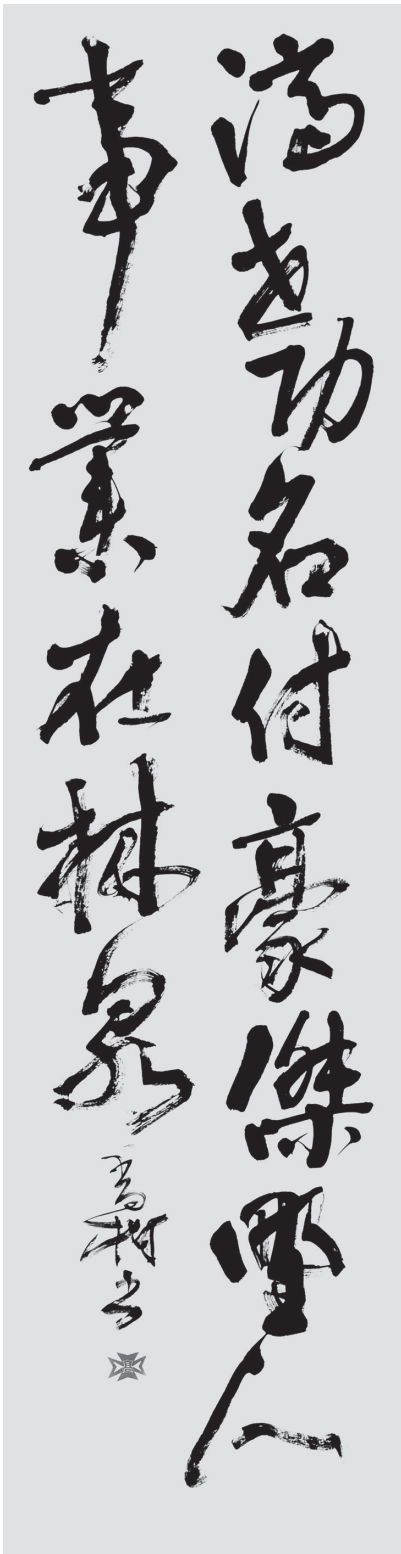 済世功名付豪傑野人
事業在林泉
書